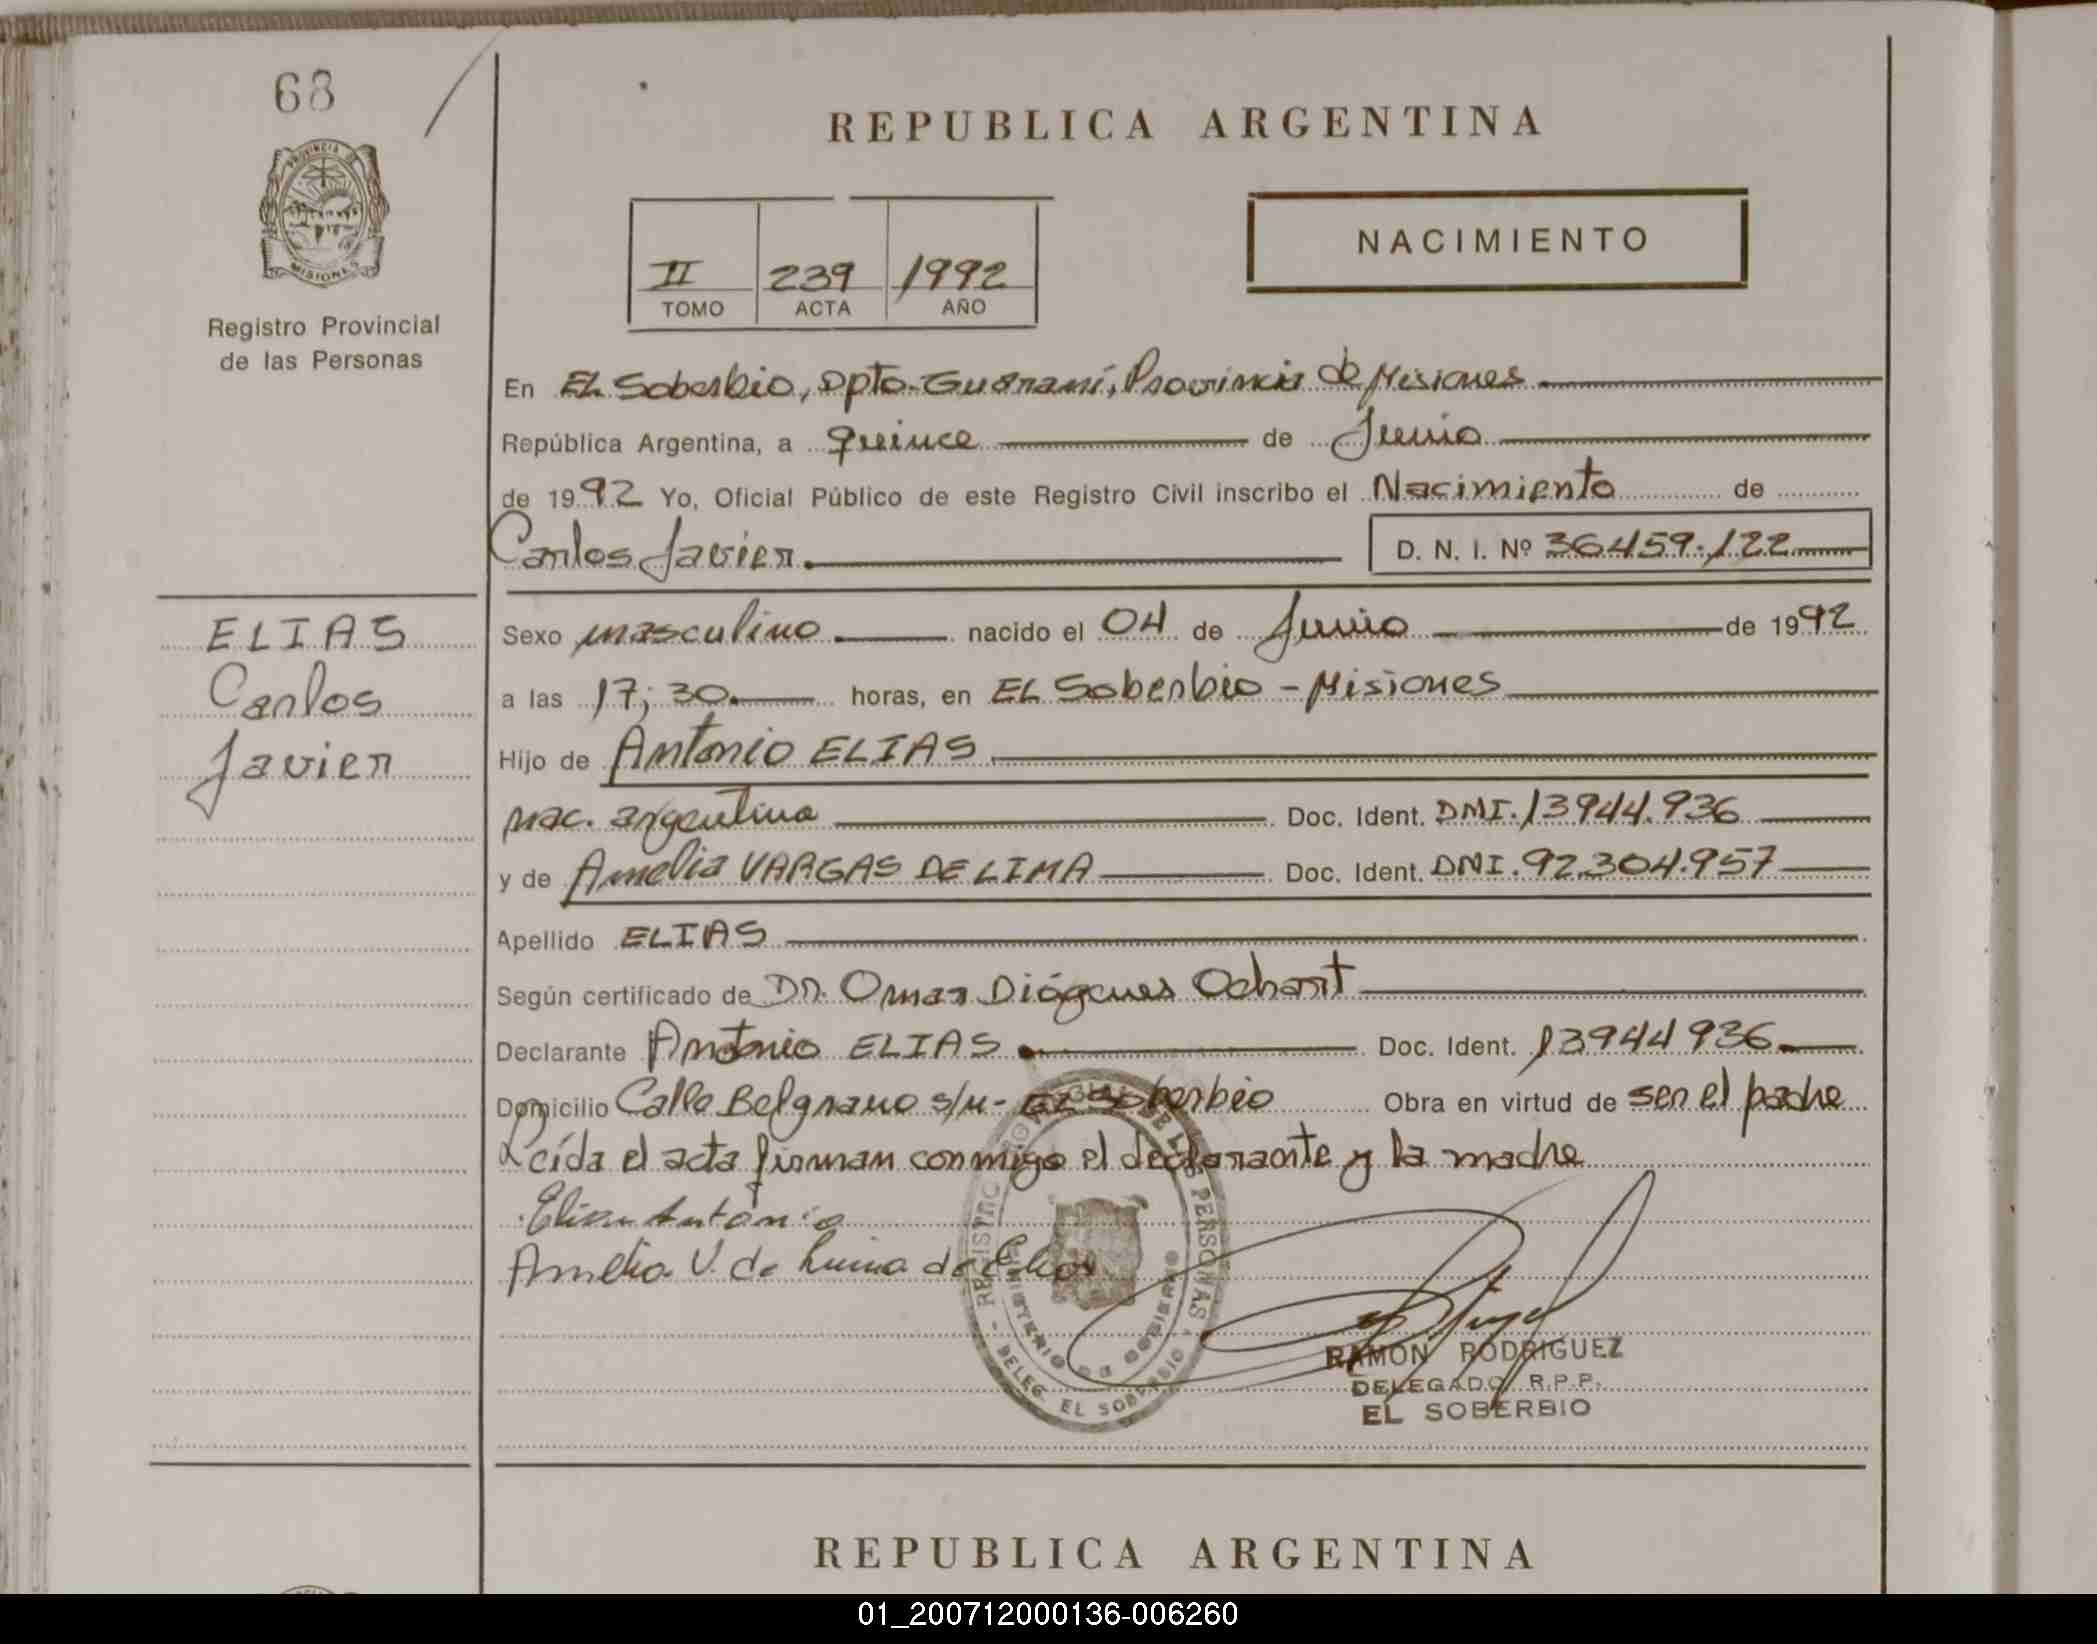 68
PROVINCIA DE
MISIONES
Registro Provincial
de las Personas
REPUBLICA ARGENTINA
II 239 1992
TOMO ACTA AÑO
NACIMIENTO
En EL Soberbio, Dpto. Guaraní, Provincia de Misiones
República Argentina, a quince de Junio
de 1992 Yo, Oficial Público de este Registro Civil inscribo el Nacimiento de
Carlos Javier. D. N. I. Nº 36459.122
ELIAS
Carlos
Javier
Sexo masculino nacido el 04 de Junio de 1992
a las 17;30 horas, en EL Soberbio - Misiones
Hijo de Antonio ELIAS
nac. argentina Doc. Ident. DNI. 13944.936
y de Amelia VARGAS DE LIMA Doc. Ident. DNI. 92.304.957
Apellido ELIAS
Según certificado de Dr. Omar Diógenes
Declarante Antonio ELIAS Doc. Ident. 13944936
Domicilio Calle Belgrano s/n - EL Soberbio Obra en virtud de ser el padre
Leída el acta firman conmigo el declarante y la madre
Elias Antonio
Amelia V. de Lima de Elias
REGISTRO PROVINCIAL DE LAS PERSONAS
MINISTERIO DE GOBIERNO
- DELEG. EL SOBERBIO -
RAMON RODRIGUEZ
DELEGADO R.P.P.
EL SOBERBIO
REPUBLICA ARGENTINA
01_200712000136-006260